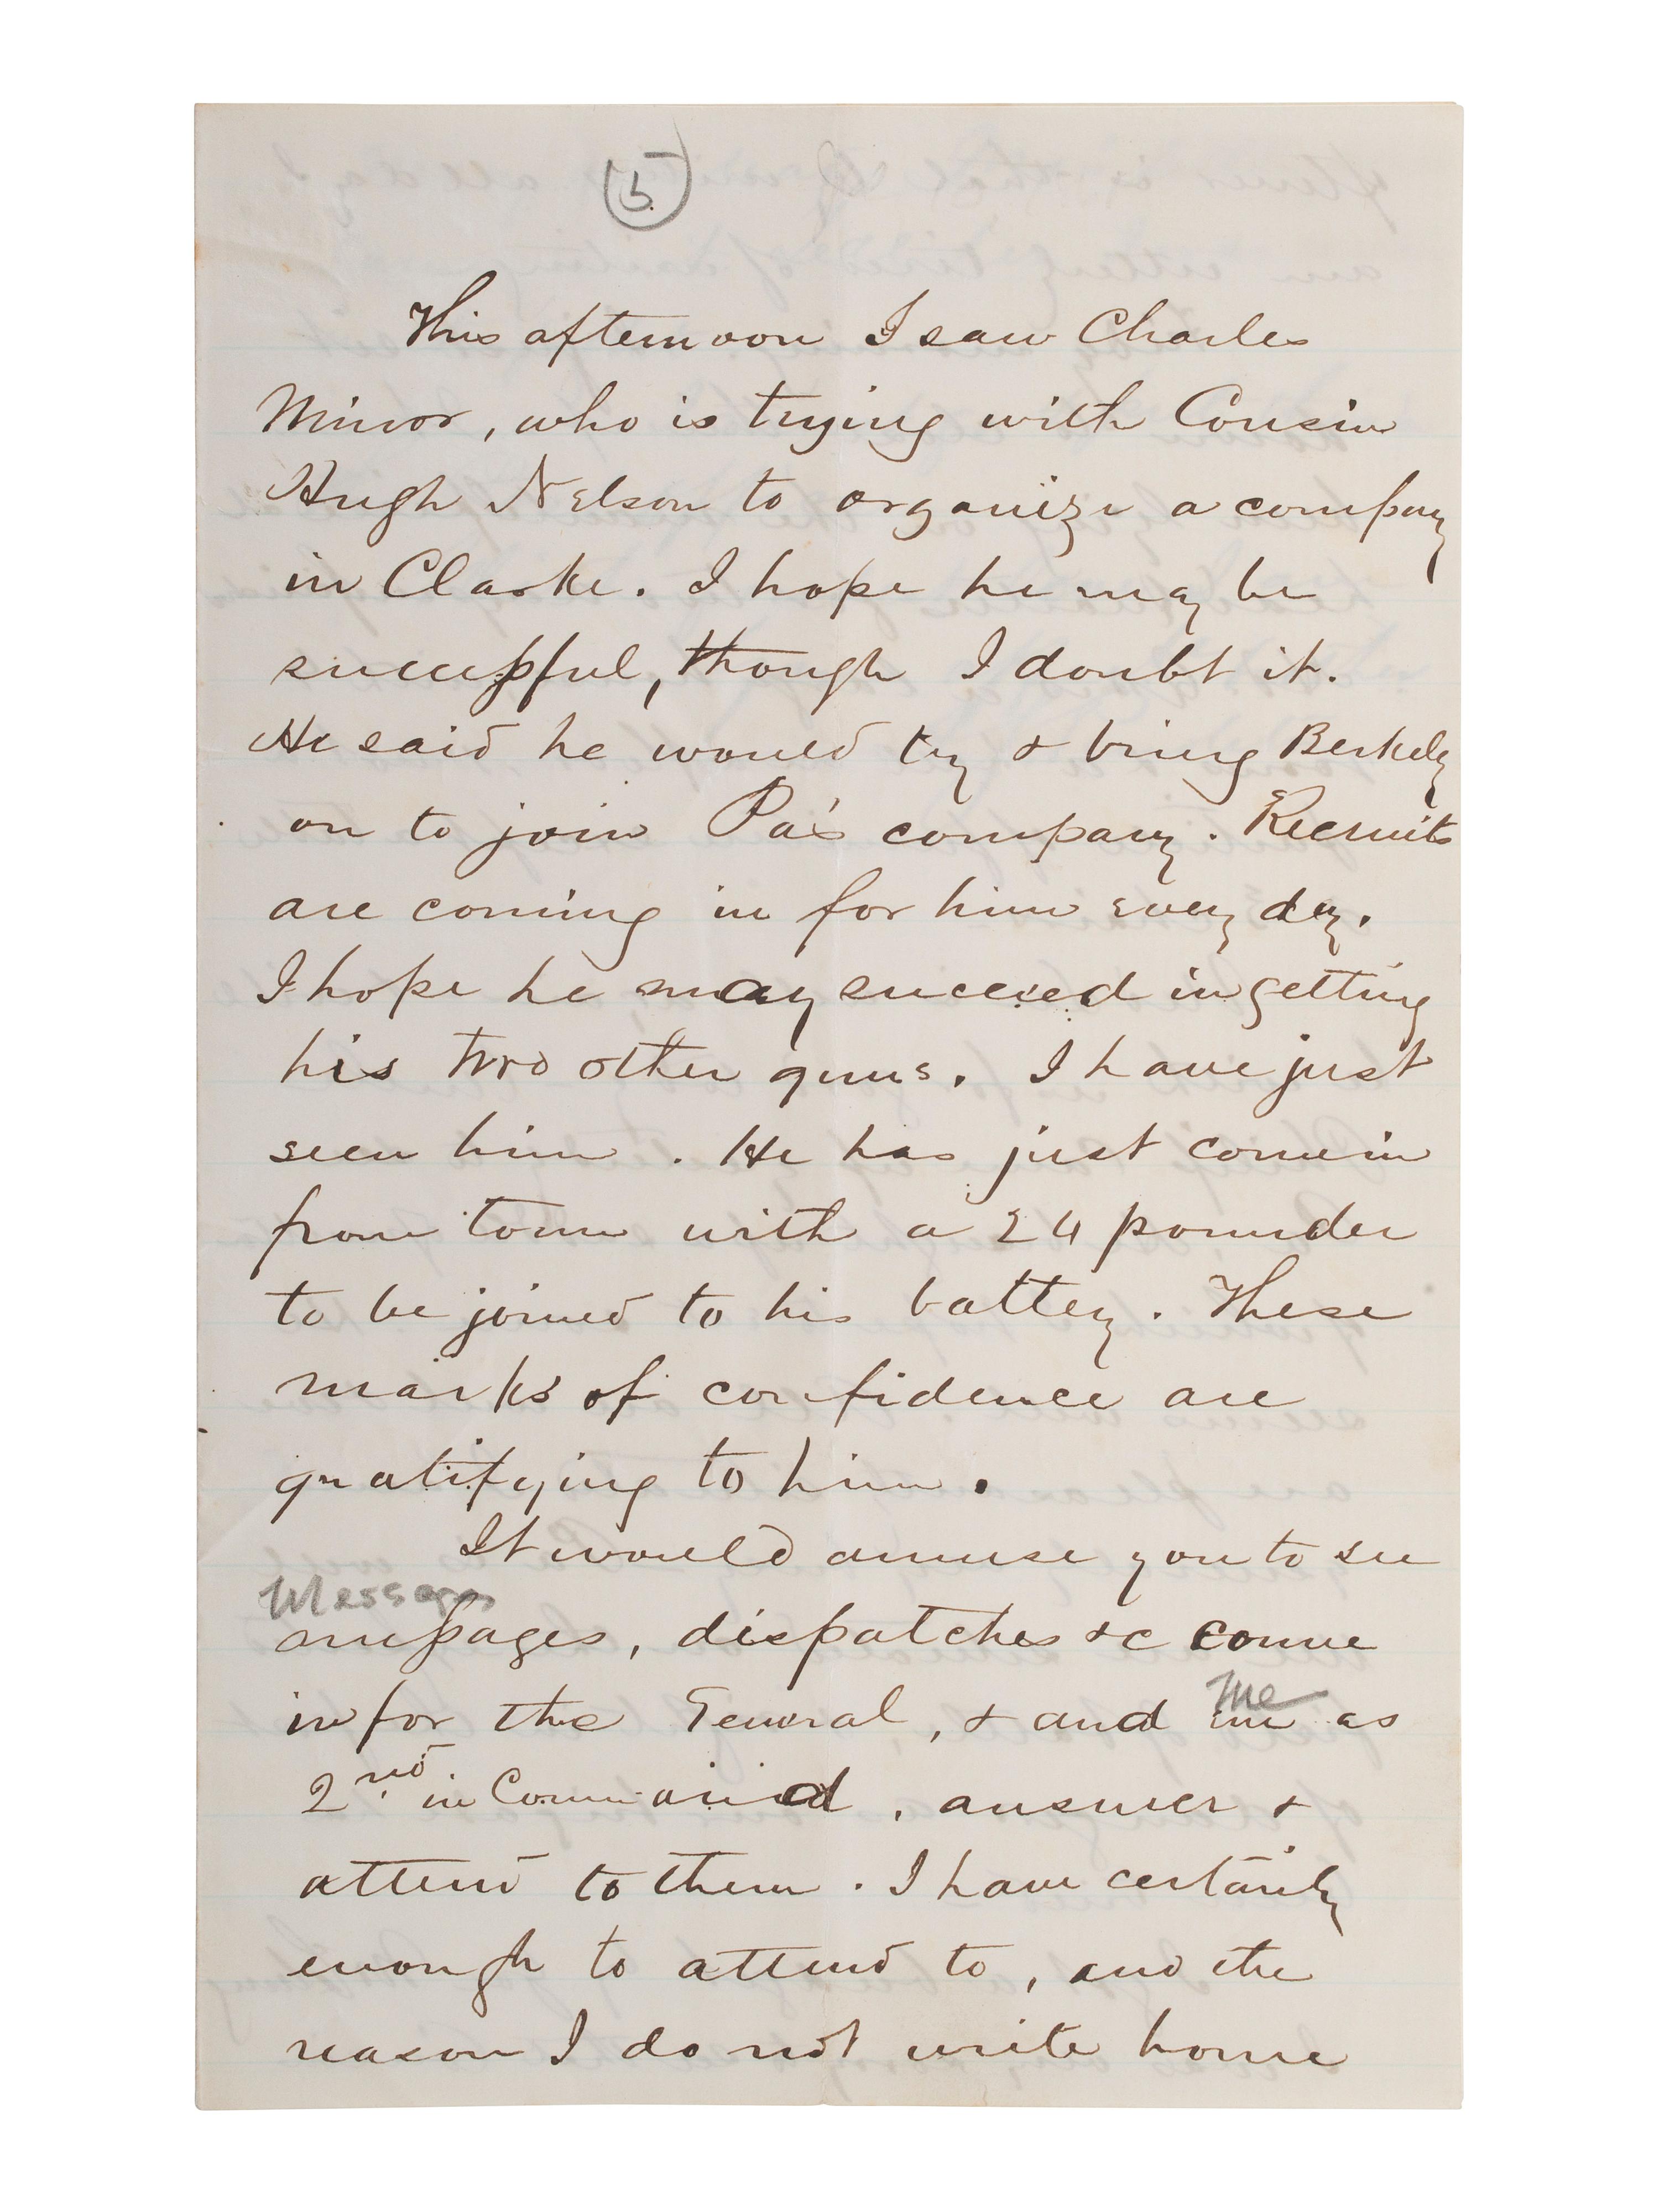 5
This afternoon I saw Charles
Minor, who is trying with Cousin
Hugh Nelson to organize a company
in Clarke. I hope he may be
successful, though I doubt it.
He said he would try & bring Berkely
on to join Pa's company. Recruits
are coming in for him every day.
I hope he may succeed in getting
his two other guns. I have just
seen him. He has just come in
from town with a 24 pounder
to be joined to his battery. These
marks of confidence are
gratifying to him.
It would amuse you to see
Messages
messages, dispatches &c come
in for the General, & and me as
me
2nd in Command, answer &
attend to them. I have certainly
enough to attend to, and the
reason I do not write home